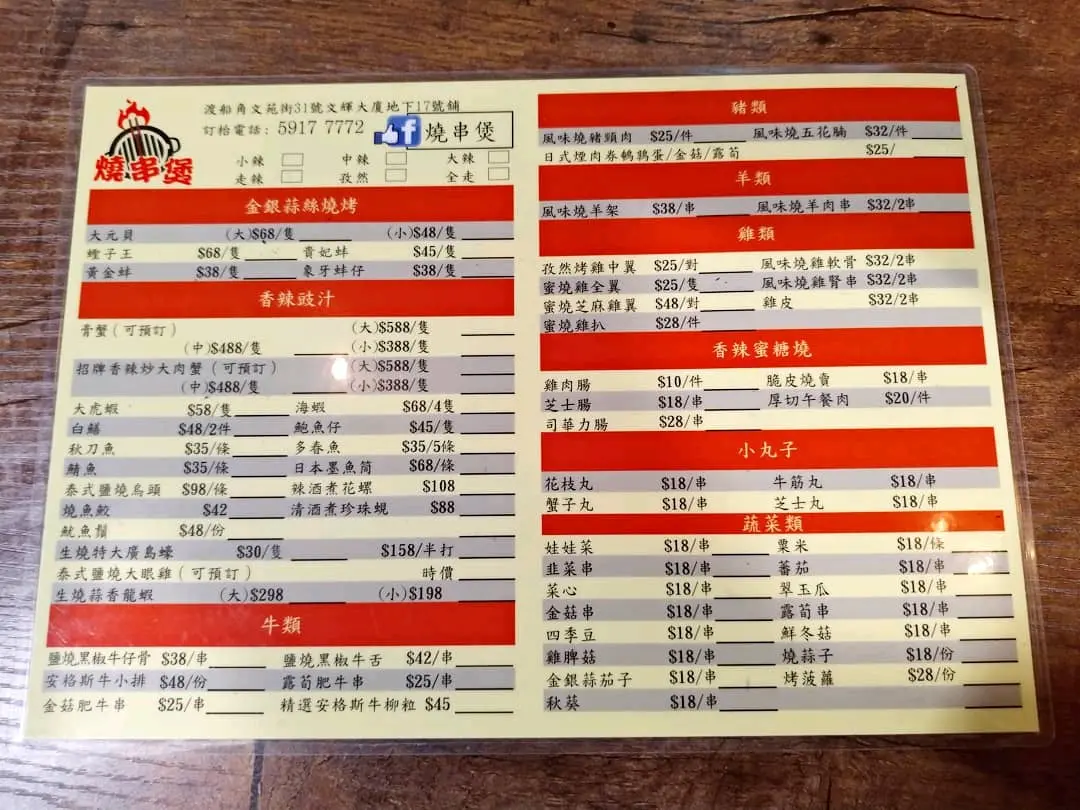 燒串煲
渡船角文苑街31號文輝大廈地下17號舖
訂枱電話: 5917 7772 f 燒串煲
小辣 中辣 大辣
走辣 孜然 全走
金銀蒜絲燒烤
大元貝 (大)$68/隻 (小)$48/隻
蟶子王 $68/隻 貴妃蚌 $45/隻
黃金蚌 $38/隻 象牙蚌仔 $38/隻
香辣豉汁
膏蟹(可預訂) (大)$588/隻
(中)$488/隻 (小)$388/隻
招牌香辣炒大肉蟹(可預訂) (大)$588/隻
(中)$488/隻 (小)$388/隻
大虎蝦 $58/隻 海蝦 $68/4隻
白鱔 $48/2件 鮑魚仔 $45/隻
秋刀魚 $35/條 多春魚 $35/5條
鯖魚 $35/條 日本墨魚筒 $68/條
泰式鹽燒烏頭 $98/條 辣酒煮花螺 $108
燒魚鮫 $42 清酒煮珍珠蜆 $88
魷魚鬚 $48/份
生燒特大廣島蠔 $30/隻 $158/半打
泰式鹽燒大眼雞(可預訂) 時價
生燒蒜香龍蝦 (大)$298 (小)$198
牛類
鹽燒黑椒牛仔骨 $38/串 鹽燒黑椒牛舌 $42/串
安格斯牛小排 $48/份 露荀肥牛串 $25/串
金菇肥牛串 $25/串 精選安格斯牛柳粒 $45
豬類
風味燒豬頸肉 $25/件 風味燒五花腩 $32/件
日式煙肉券鵪鶉蛋/金菇/露荀 $25/
羊類
風味燒羊架 $38/串 風味燒羊肉串 $32/2串
雞類
孜然烤雞中翼 $25/對 風味燒雞軟骨 $32/2串
蜜燒雞全翼 $25/隻 風味燒雞腎串 $32/2串
蜜燒芝麻雞翼 $48/對 雞皮 $32/2串
蜜燒雞扒 $28/件
香辣蜜糖燒
雞肉腸 $10/件 脆皮燒賣 $18/串
芝士腸 $18/串 厚切午餐肉 $20/件
司華力腸 $28/串
小丸子
花枝丸 $18/串 牛筋丸 $18/串
蟹子丸 $18/串 芝士丸 $18/串
蔬菜類
娃娃菜 $18/串 粟米 $18/條
韭菜串 $18/串 蕃茄 $18/串
菜心 $18/串 翠玉瓜 $18/串
金菇串 $18/串 露荀串 $18/串
四季豆 $18/串 鮮冬菇 $18/串
雞脾菇 $18/串 燒蒜子 $18/份
金銀蒜茄子 $18/串 烤菠蘿 $28/份
秋葵 $18/串